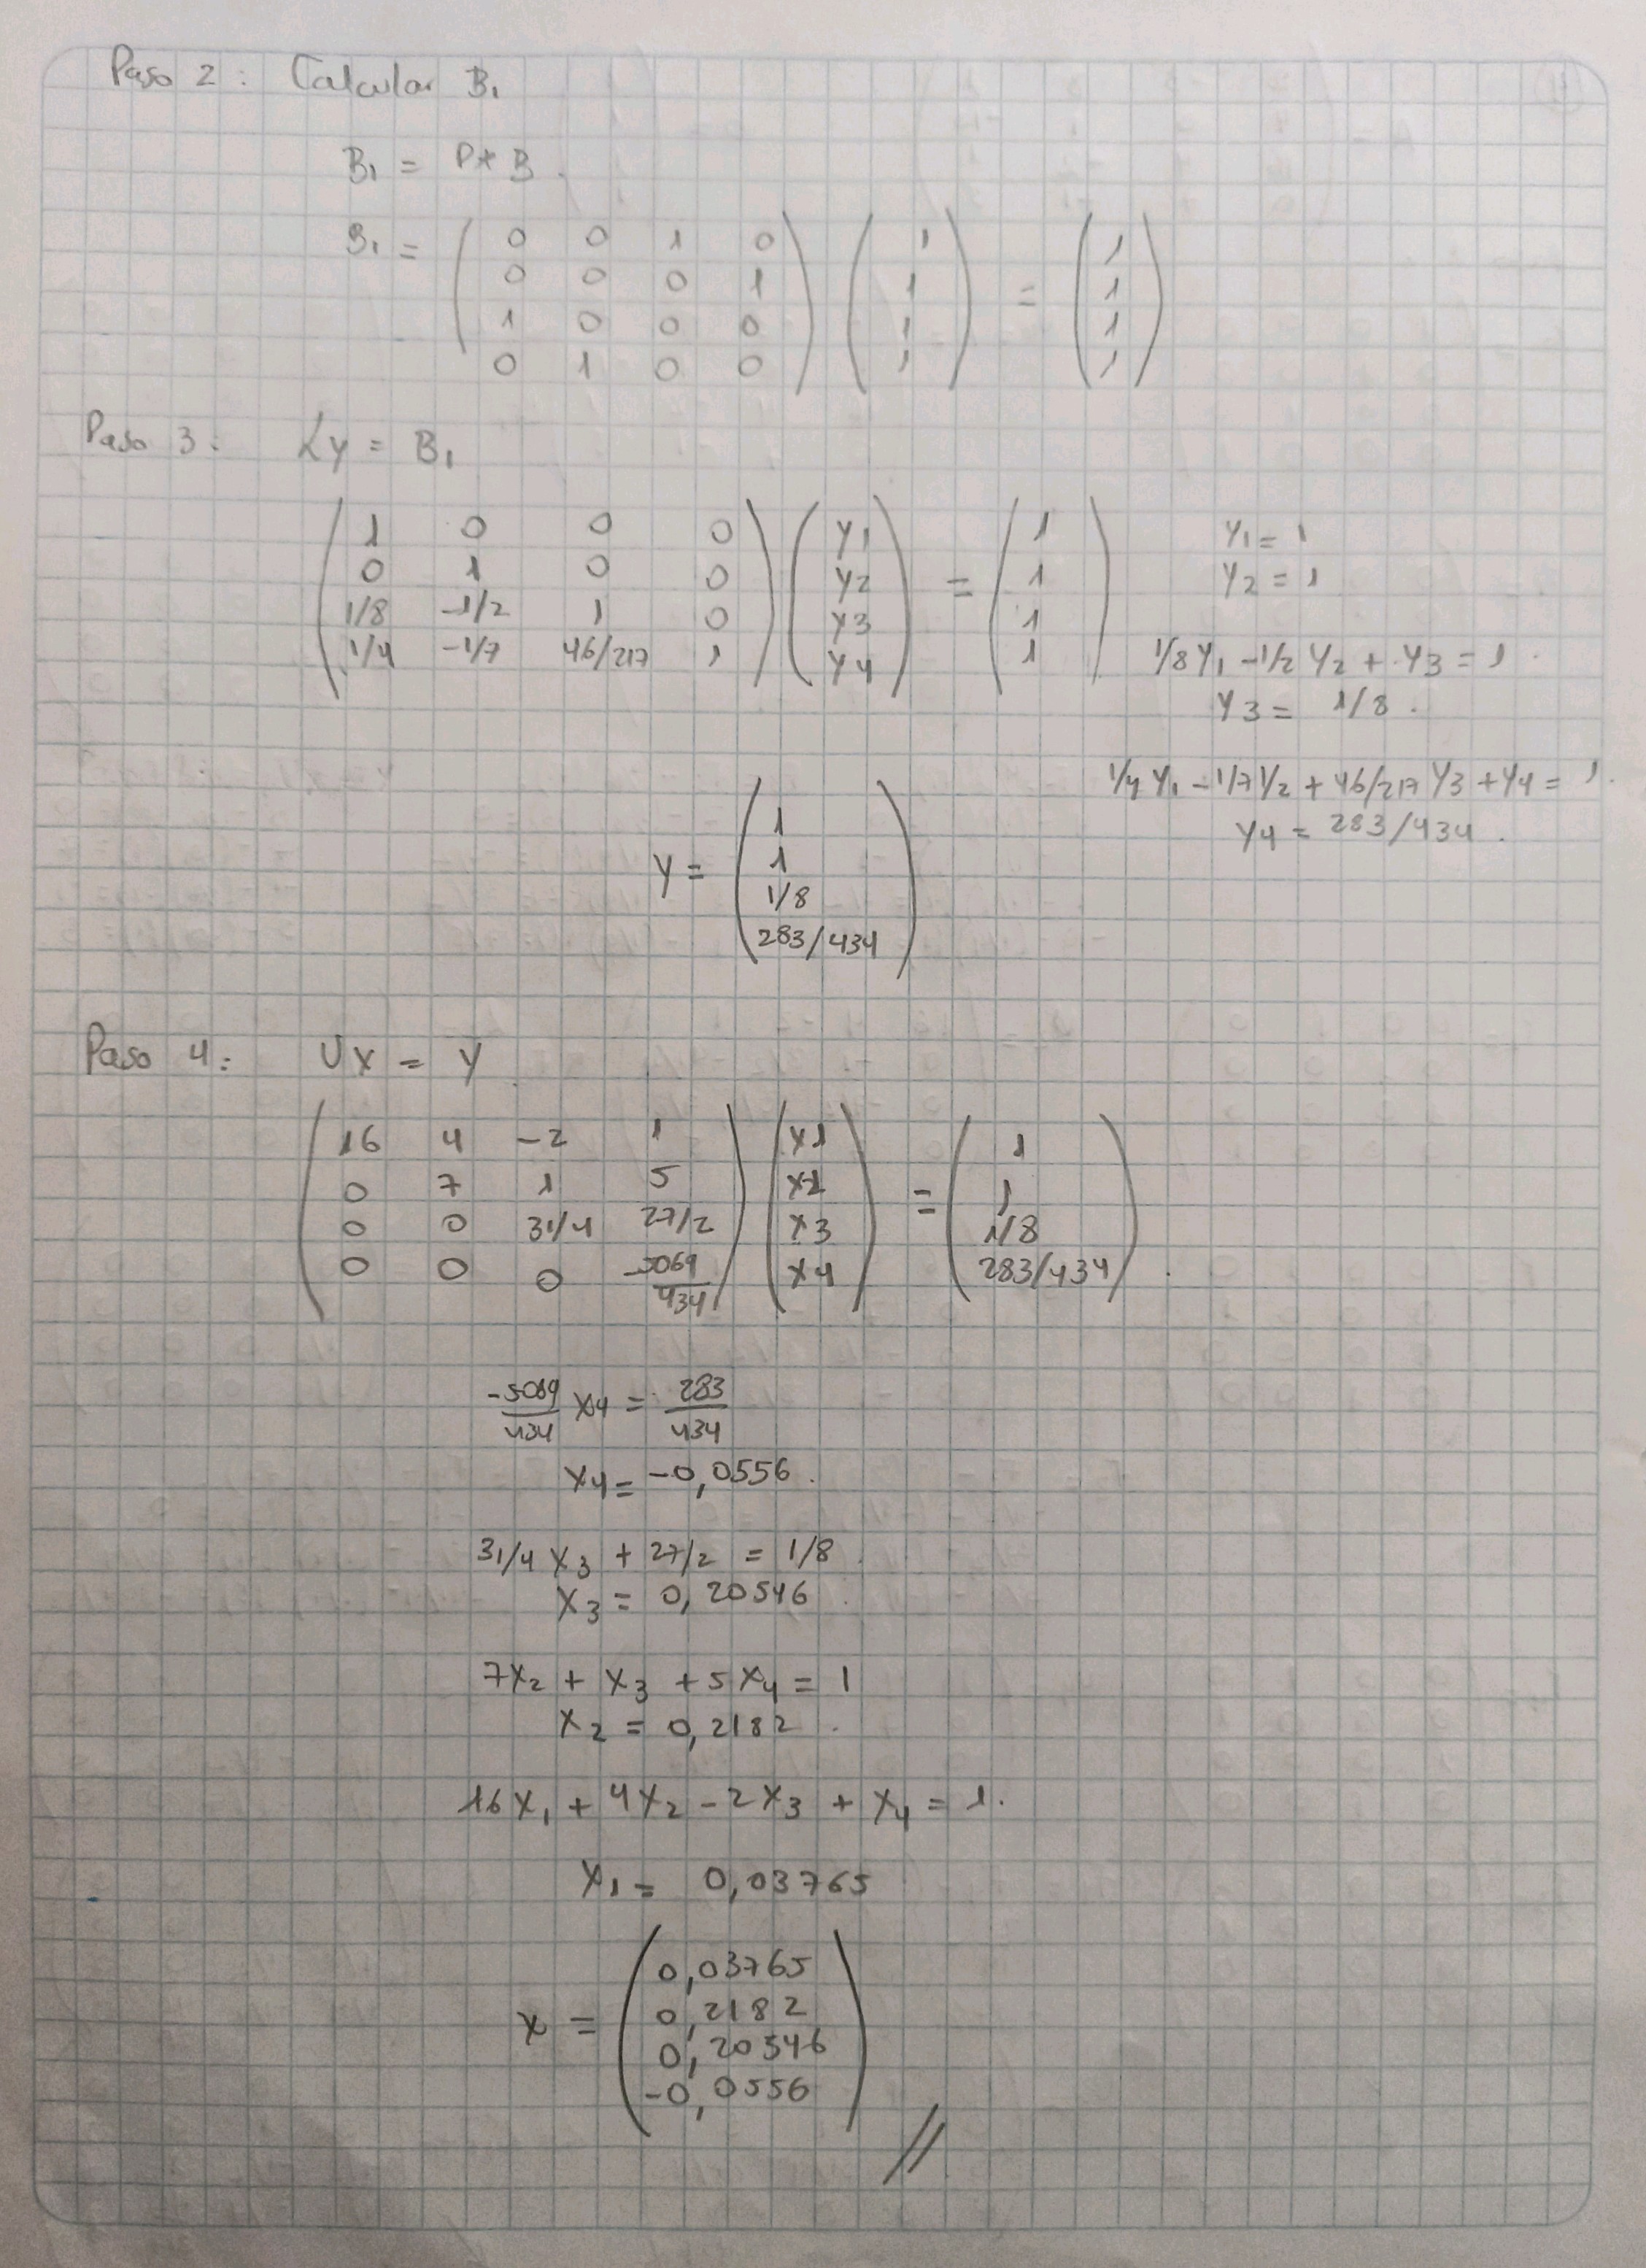 Paso 2: Calcular B₁
B₁ = P*B.
B₁ = ( 0 0 1 0 ) ( 1 ) = ( 1 )
0 0 0 1 1 1
1 0 0 0 1 1
0 1 0 0 1 1
Paso 3: Ly = B₁
( 1 0 0 0 ) ( y1 ) = ( 1 ) y₁ = 1
0 1 0 0 y2 1 y₂ = 1
1/8 -1/2 1 0 y3 1
1/4 -1/7 46/217 1 y4 1
1/8 y₁ - 1/2 y₂ + y3 = 1.
y3 = 1/8.
1/4 y₁ - 1/7 y₂ + 46/217 y3 + y4 = 1.
y4 = 283/434.
y = ( 1 )
1
1/8
283/434
Paso 4: Ux = y
( 16 4 -2 1 ) ( x1 ) = ( 1 )
0 7 1 5 x2 1
0 0 31/4 27/2 x3 1/8
0 0 0 -5069/434 x4 283/434 .
-5069/434 x4 = 283/434
x4 = -0,0556.
31/4 x3 + 27/2 = 1/8
x3 = 0,20546.
7x₂ + x3 + 5x4 = 1
x₂ = 0,2182.
16x₁ + 4x₂ - 2x3 + x4 = 1.
x₁ = 0,03765
x = ( 0,03765 )
0,2182
0,20546
-0,0556 //